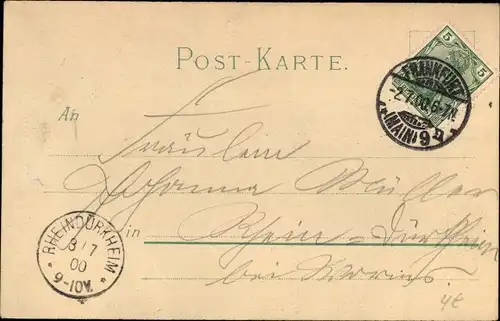 POST-KARTE.
5 5
FRANKFURT
-2.7.00.6-7N.
(MAIN) 9
An
Fräulein
Johanna Müller
in Rhein-Dürkheim
bei Worms.
RHEINDÜRKHEIM
3/7
00
9-10V.
4€